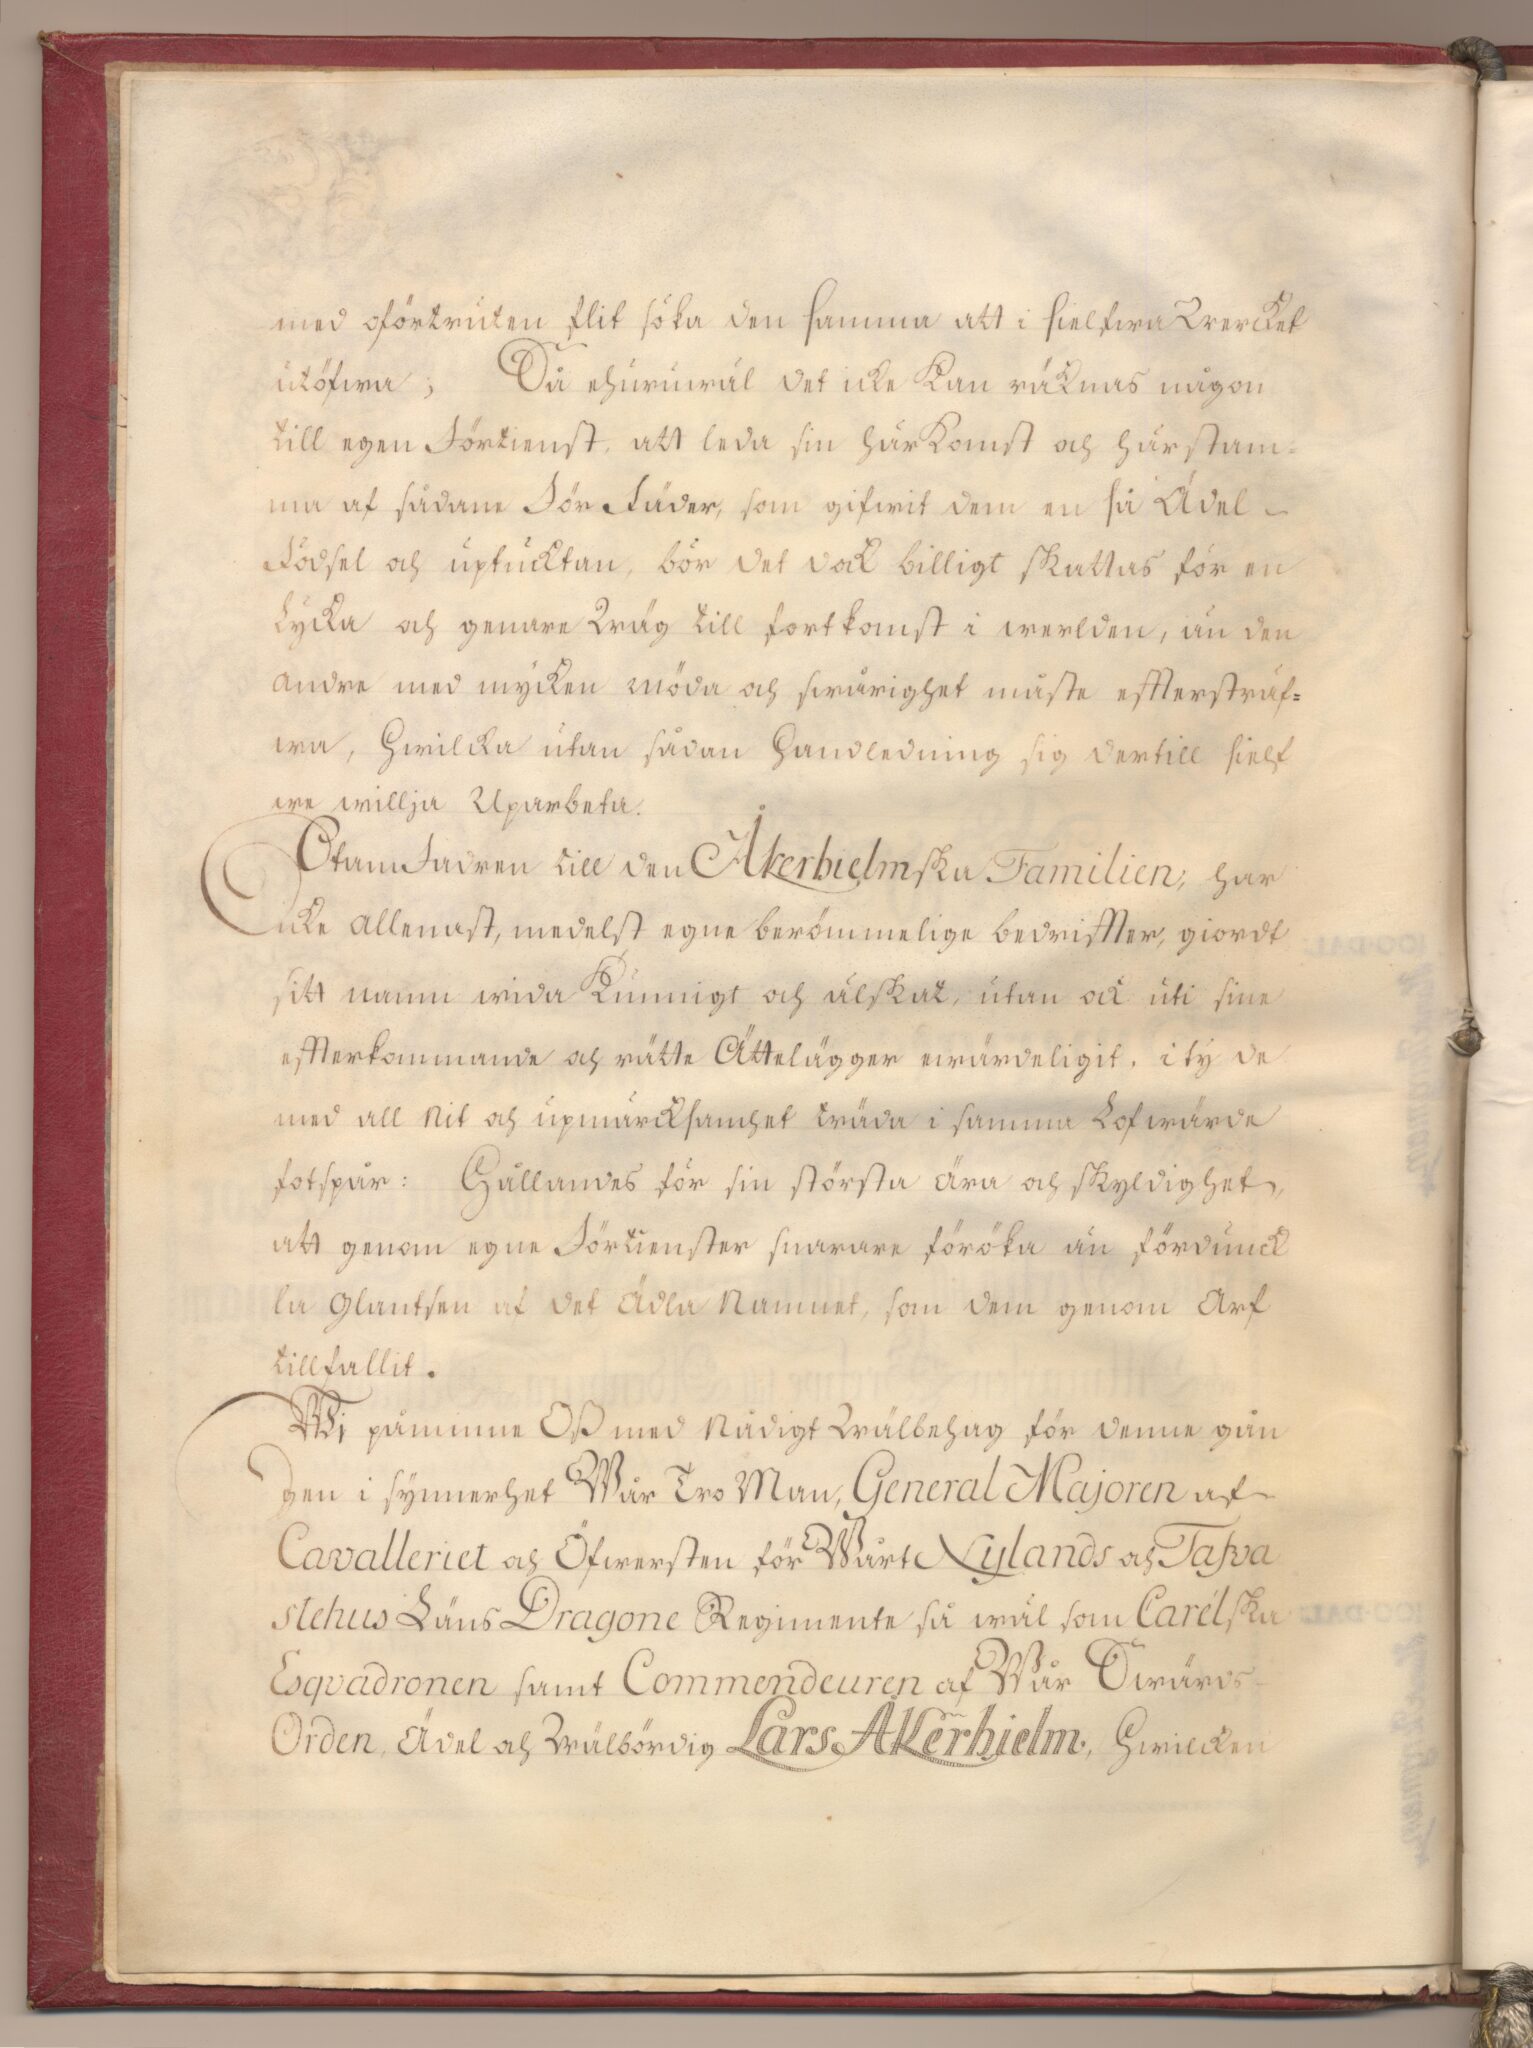 med oförtruten flit söka den samma att i sielfwa Wercket
utöfwa; Då ehuruwäl det icke kan räknas någon
till egen Förtienst, att leda sin härkomst och härstam=
ma af sådane Förfäder, som gifwit dem en så Ädel
Födsel och uptucktan, bör det dock billigt skattas för en
Lycka och genare Wäg till fortkomst i werlden, än den
andre med mycken möda och swårighet måste effterstraf=
wa, Hwilcka utan sådan Handledning sig dertill sielf
we willja Uparbeta.
Stamfadren till den Åkerhielmska Familien, har
icke allenast, medelst egne berömmelige bedriffter, giordt
sitt namn wida Kunnigt och älskat, utan ock uti sine
effterkommande och rätte Ättelägger ewärdeligit, i ty de
med all Nit och upmärcksamhet träda i samma Lofwärde
fotspår: Hållandes för sin största ära och skyldighet,
att genom egne Förtienster snarare föröka än fördunck
la Glantsen af det Ädla Namnet, som dem genom Arf
tillfallit.
Wi påminne Oß med Nådigt Wälbehag för denne gån
gen i synnerhet Wår Tro Man, General Majoren af
Cavalleriet och Öfwersten för Wårt Nylands och Tafva
stehus Läns Dragone Regimente så wäl som Carelska
Esqvadronen samt Commendeuren af Wår Swärds
Orden, Ädel och Wälbördig Lars Åkerhielm, Hwilcken